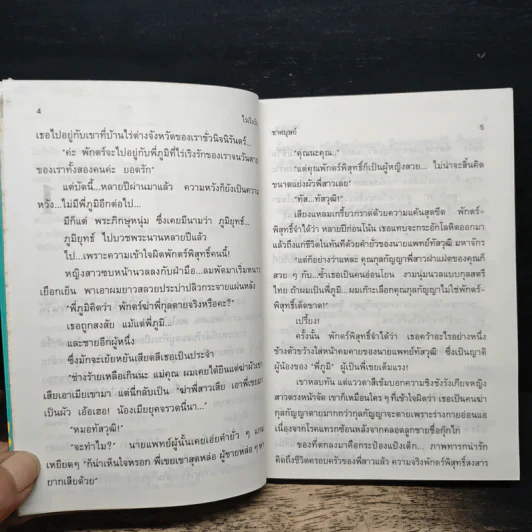 4
ไร่เริงรัก
เธอไปอยู่กับเขาที่บ้านไร่ต่างจังหวัดของเราชั่วนิจนิรันดร์...
"ค่ะ พักตร์จะไปอยู่กับพี่ภูมิที่ไร่เริงรักของเราจนวันตาย
ของเราทั้งสองคนค่ะ ยอดรัก"
แต่บัดนี้...หลายปีผ่านมาแล้ว ความหวังก็ยังเป็นความ
หวัง...ไม่มีพี่ภูมิอีกต่อไป...
มีก็แต่ พระภิกษุหนุ่ม ซึ่งเคยมีนามว่า ภูมิยุทธ์...
ภูมิยุทธ์ ไปบวชพระนานหลายปีแล้ว
ไป...เพราะความเข้าใจผิดพักตร์พิสุทธิ์คนนี้!
หญิงสาวซบหน้านวลลงกับฝ่ามือ...ลมพัดมาเริ่มหนาว
เยือกเย็น พาเอาผมยาวสลวยประบ่าปลิวกระจายเต็มแผ่นหลัง
"พี่ภูมิคิดว่า พักตร์ฆ่าพี่กุลตายจริงหรือคะ?"
เธอถูกสงสัย แม้แต่พี่ภูมิ...
และชายอีกผู้หนึ่ง
ซึ่งมักจะเย้ยหยันเสียดสีเธอเป็นประจำ
"ช่างร้ายเหลือเกินนะ แม่คุณ ผมเคยได้ยินแต่ฆ่าผัวเขา
เสียเอาเมียเขามา แต่นี่กลับเป็น "ฆ่าพี่สาวเสีย เอาพี่เขยมา
เป็นผัว เอ้อเฮอ! น้องเมียยุคจรวดนี่นา..."
"หมอทัสวุฒิ!"
"จะทำไม?" นายแพทย์ผู้นั้นเคยเอ่ยคำยั่ว ๆ แกม
เหยียดๆ "ก็น่าเห็นใจหรอก พี่เขยเขาสุดหล่อ ผู้ชายหล่อ ๆ หา
ยากเสียด้วย"
ซาตบุษย์
5
"คุณนะคุณ..."
"แต่คุณพักตร์พิสุทธิ์ก็เป็นผู้หญิงสวย... ไม่น่าจะสิ้นคิด
ขนาดแย่งผัวพี่สาวเลย"
"ทัส...ทัสวุฒิ!"
เสียงแหลมเกรี้ยวกราดด้วยความแค้นสุดขีด พักตร์-
พิสุทธิ์จำได้ว่า หลายปีก่อนโน้น เธอแทบจะกระอักโลหิตออกมา
แล้วถึงแก่ชีวิตในทันทีด้วยคำยั่วของนายแพทย์ทัสวุฒิ มหาจักร
"แต่ก็อย่างว่าแหละ คุณกุลกัญญาพี่สาวฝาแฝดของคุณก็
สวย ๆ กับ...ซ้ำเธอเป็นคนอ่อนโยน งามนุ่มนวลแบบกุลสตรี
ไทย ถ้าผมเป็นพี่ภูมิ...ผมเก๊าะเลือกคุณกุลกัญญาไม่ใช่พักตร์-
พิสุทธิ์เด็ดขาด!"
เปรี้ยง!
ครั้งนั้น พักตร์พิสุทธิ์จำได้ว่า เธอคว้าอะไรอย่างหนึ่ง
ข้างตัวขว้างใส่หน้าคมคายของนายแพทย์ทัสวุฒิ ซึ่งเป็นญาติ
ผู้น้องของ "พี่ภูมิ" ผู้เป็นพี่เขยเต็มแรง!
เขาหลบทัน แต่แววตาสีเข้มบอกความชิงชังรังเกียจหญิง
สาวตรงหน้าจัด เขาก็เหมือนใครๆ ที่เข้าใจผิดว่า เธอเป็นคนฆ่า
กุลกัญญาตายมากกว่ากุลกัญญาจะตายเพราะร่างกายอ่อนแอ
เนื่องจากโรคแทรกซ้อนหลังจากคลอดลูกชายชื่อกุ๊กไก่
ของที่ตกลงมาคือกระป๋องแป้งเด็ก... ภาพทารกน่ารัก
คิดถึงชีวิตครอบครัวของพี่สาวแล้ว ความจริงพักตร์พิสุทธิ์สงสาร